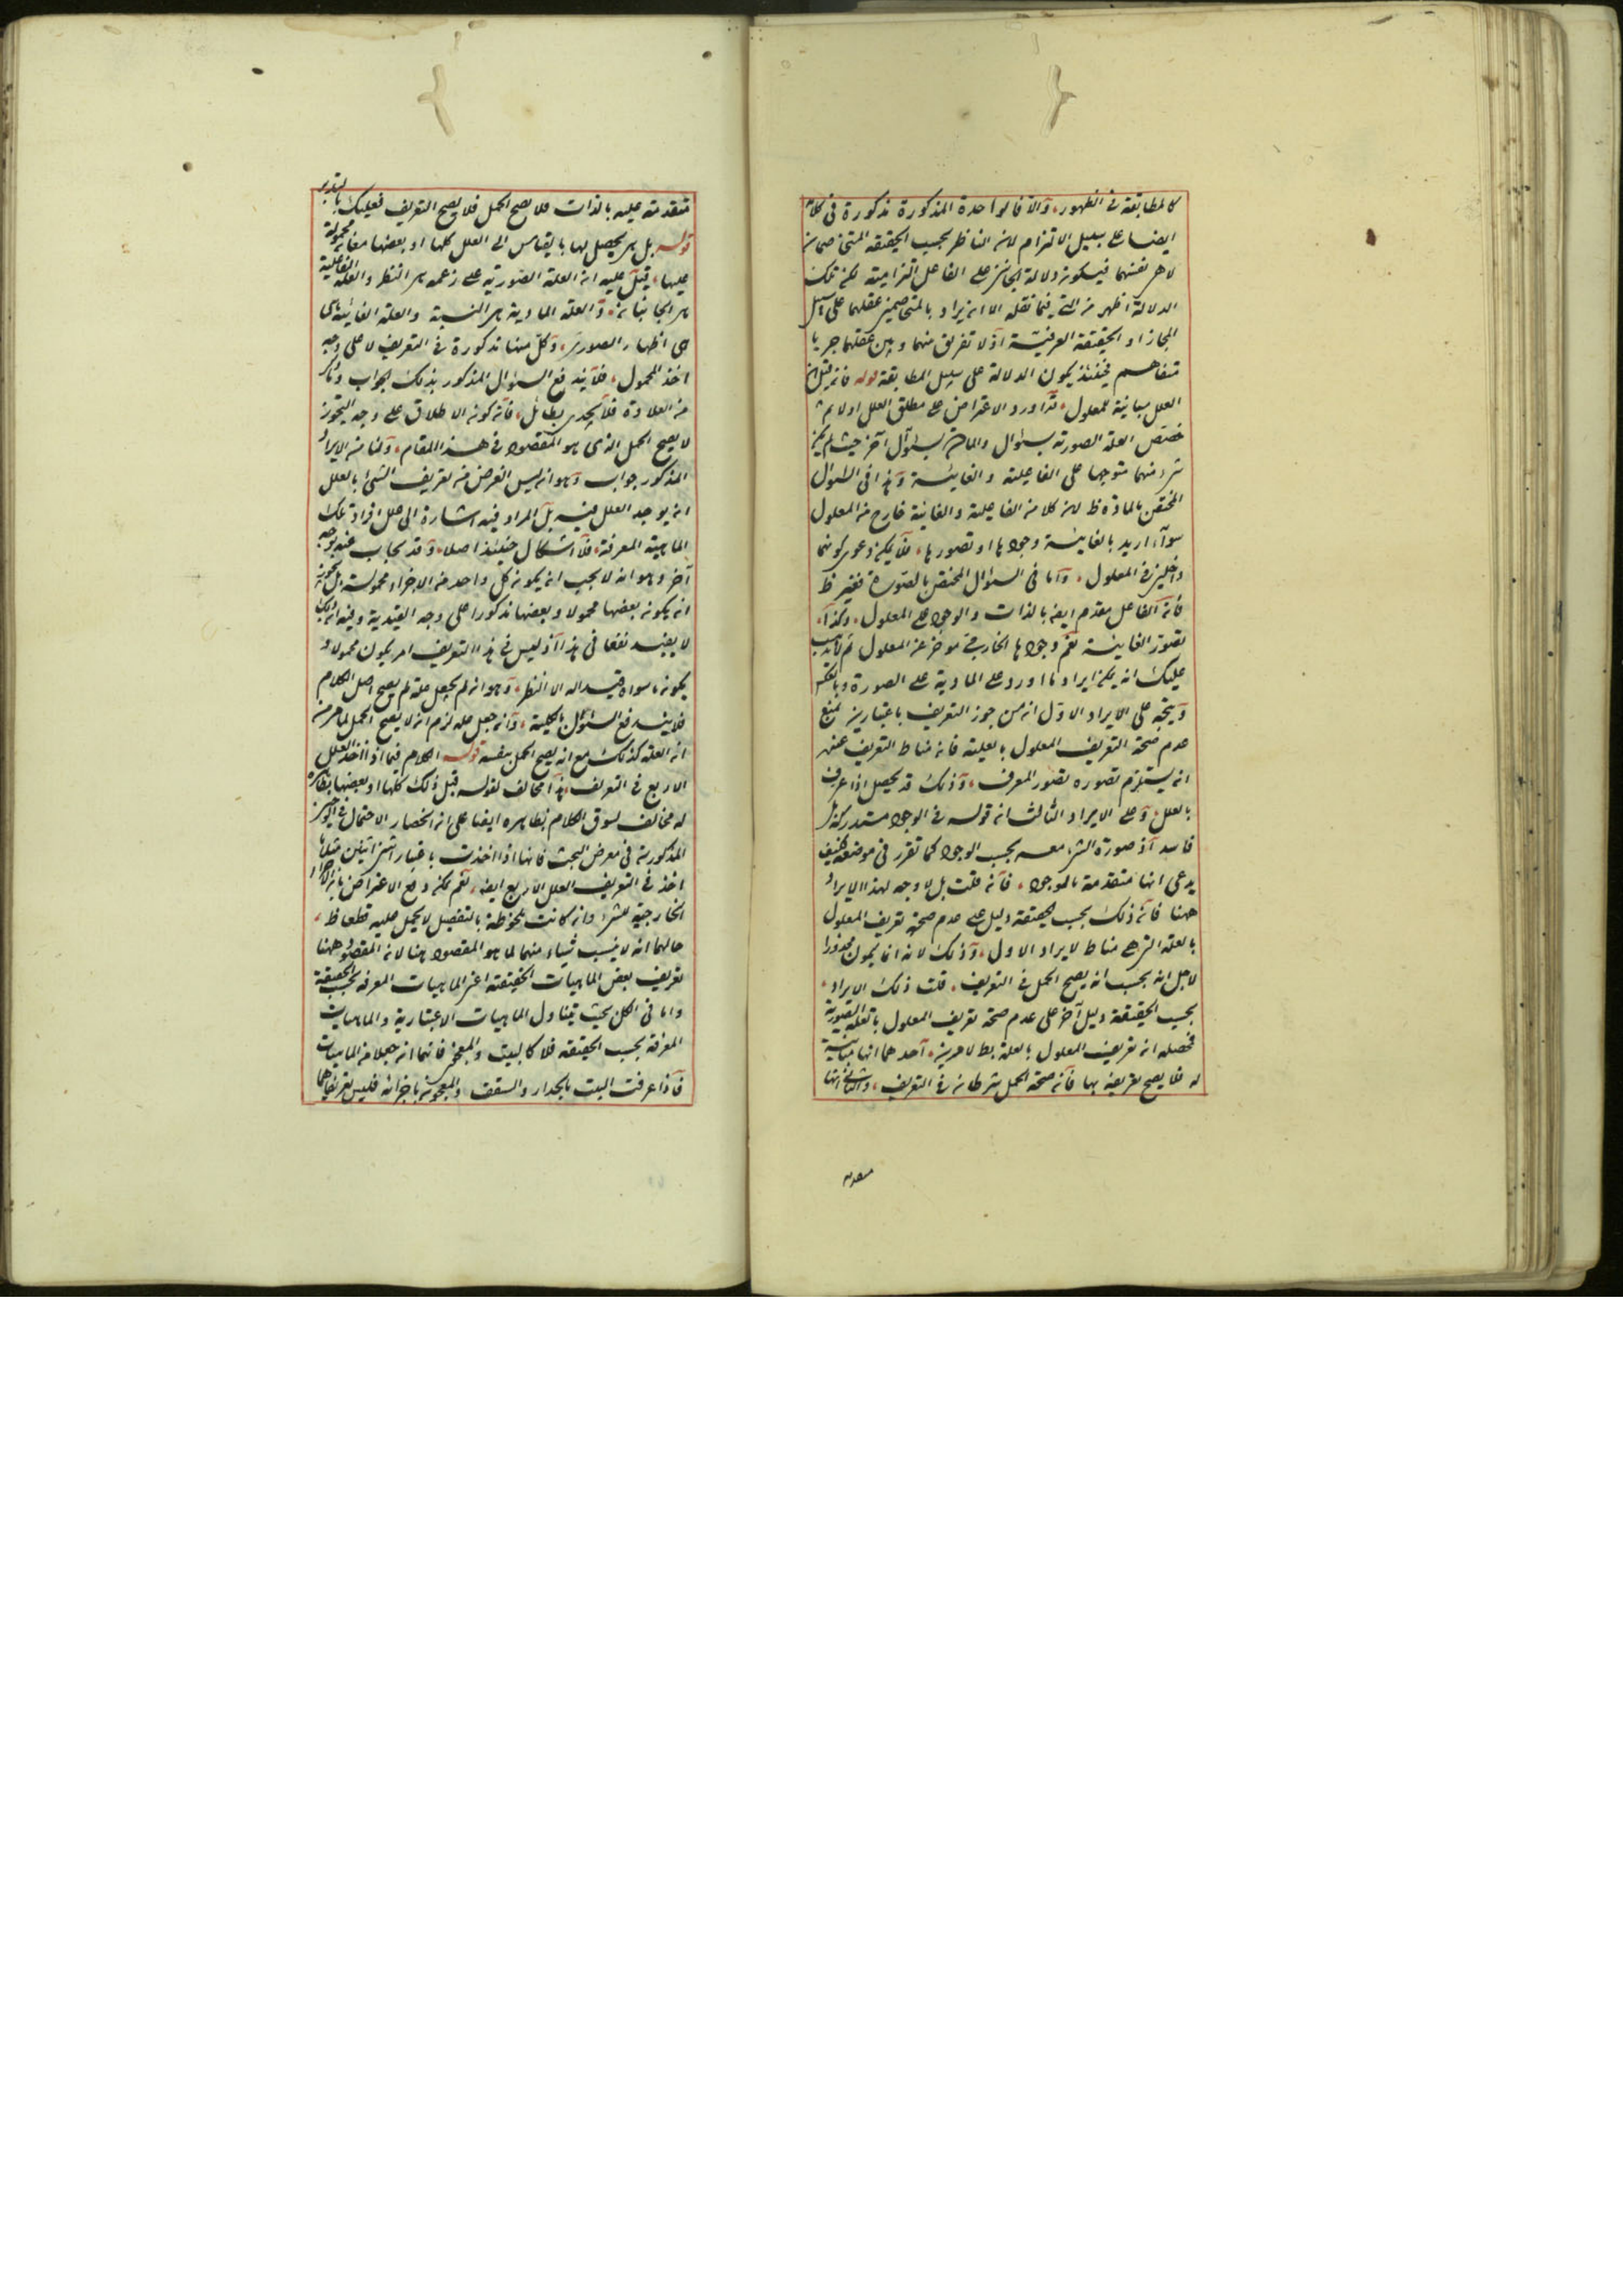 كالمطابقة في الظهور، والا فالواحدة المذكورة مذكورة في كلام
ايضا على سبيل الالتزام لان الناظر بحسب الحقيقة المتخاصمان
لا هو نفسهما فيكون دلالة الجانبين على الفاعل التزامية لكن تلك
الدلالة اظهر من التي فيما نقله الا ان يراد بالمتخاصمين عقلهما على سبيل
المجاز او الحقيقة العرفية اذ لا تفريق منهما وبين عقلهما جريا
متفاهم فحينئذ يكون الدلالة على سبيل المطابقة قوله فان قيل ان
العلل مباينة للمعلول، قد اورد الاعتراض على مطلق العلل اولا ثم
خصص العلة الصورية بسؤال والمادية بسؤال آخر حيث لم يكن
شيء منهما متوجها على الفاعلية والغائية وهذا في السؤال
المختص بالمادة ظ لان كلا من الفاعلية والغائية خارج من المعلول
سواء اريد بالغائية وجودها او تصورها، فلا يمكن دعوى كونهما
داخلين في المعلول، واما في السؤال المختص بالصورة فغير ظ
فان الفاعل مقدم ايضا بالذات والوجود على المعلول، وكذا
تصور الغائية نعم وجودها الخارجي مؤخر عن المعلول ثم لا يذهب
عليك انه يمكن ايراد ما اورد على المادية على الصورة وبالعكس
ويتجه على الايراد الاول ان من جوز التعريف باعتبارين يمنع
عدم صحة التعريف المعلول بالعلية فان مناط التعريف عنده
ان يستلزم تصوره تصور المعرف، وذلك قد يحصل اذا عرف
بالعلل وعلى الايراد الثالث ان قوله في الوجود مستدرك بل
فاسد اذ صورة الشيء معه بحسب الوجود كما تقرر في موضعه فكيف
يدعى انها متقدمة بالوجود، فان قلت بل لا وجه لهذا الايراد
ههنا فان ذلك بحسب الحقيقة دليل على عدم صحة تعريف المعلول
بالعلة التي هي مناط الايراد الاول، وذلك لانه انما يكون محذورا
لاجل انه يجب ان يصح الحمل في التعريف، قلت ذلك الايراد
بحسب الحقيقة دليل آخر على عدم صحة تعريف المعلول بالعلة الصورية
فحصله ان تعريف المعلول بالعلة بط لامرين، احدهما انها مباينة
له فلا يصح تعريفه بها فان صحة الحمل شرطا في التعريف، والثاني انها
متقدمة
متقدمة عليه بالذات فلا يصح الحمل فلا يصح التعريف فعليك بالتدبر
قوله بل هي يحصل لها بالقياس الى العلل كلها او بعضها معان محمولة
عليها، قيل عليه ان العلة الصورية على زعمه هي النظر والعلة الفاعلية
هي الجانبان، والعلة المادية هي النسبة والعلة الغائية هي
هي اظهار الصورى، وكل منها مذكورة في التعريف لا على وجه
اخذ المحمول، فلا يندفع السؤال المذكور بذلك الجواب وما ذكر
من العلاوة فلا يجدي بطائل، فان كون الاطلاق على وجه التجوز
لا يصح الحمل الذي هو المقصود في هذا المقام، ولنا من الايراد
المذكور جواب وهو انه ليس الغرض من تعريف الشيء بالعلل
ان يوجد العلل فيه بل المراد فيه اشارة الى علل افراد تلك
الماهية المعرفة، فلا اشكال حينئذ اصلا، وقد يجاب عنه بوجه
آخر وهو انه لا يجب ان يكون كل واحد من الاجزاء محمولة بل يجوز
ان يكون بعضها محمولا وبعضها مذكورا على وجه القيدية وفيه ان ذلك
لا يفيد نفعا في هذا اذ ليس في هذا التعريف امر يكون محمولا و
يكون ما سواه قيدا له الا النظر، وهو ان لم يجعل علة لم يصح اصل الكلام
فلا يندفع السؤال بالكلية، وان جعل علة لزم ان لا يصح الحمل لما مر من
ان العلة كذلك مع انه يصح الحمل بنفسه قوله الكلام فيما اذا اخذ العلل
الاربع في التعريف، هذا مخالف لقوله قبل ذلك كلها او بعضها بظاهره
له مخالف لسوق الكلام بظاهره ايضا على ان انحصار الاحتمال في
المذكورية في معرض البحث فانها اذا اخذت باعتبار اشتراتين مثلا
اخذ في التعريف العلل الاربع ايضا، نعم يمكن دفع الاعتراض بان الاجزاء
الخارجية للشيء وان كانت ملحوظة بالتفصيل لا يحمل عليه قطعا ظ
حالهما انه لا ينسب شيء منهما لما هو المقصود هنا لان المقصود ههنا
تعريف بعض الماهيات الحقيقة اعني الماهيات المعرفة بحسب الحقيقة
واما في الكل بحيث يتناول الماهيات الاعتبارية والماهيات
المعرفة بحسب الحقيقة فلا كالبيت والمعجون فانهما ان جعلا من الماهيات
فاذا عرفت البيت بالجدار والسقف والمعجون باجزائه فليس تعريفاهما